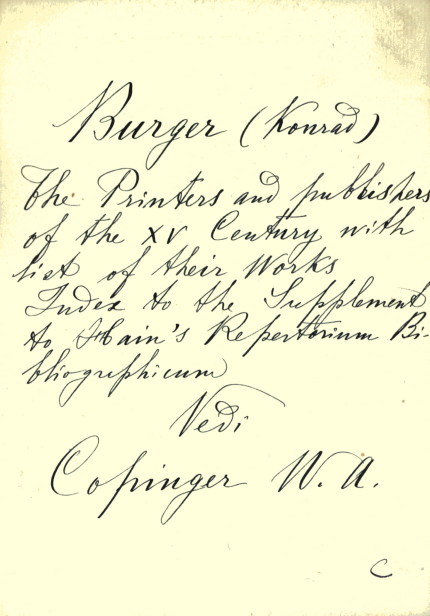 Burger (Konrad)
The Printers and publishers
of the XV Century with
list of their Works
Index to the Supplement
to Hain's Repertorium Bi-
bliographicum
Vedi
Copinger W. A.
C